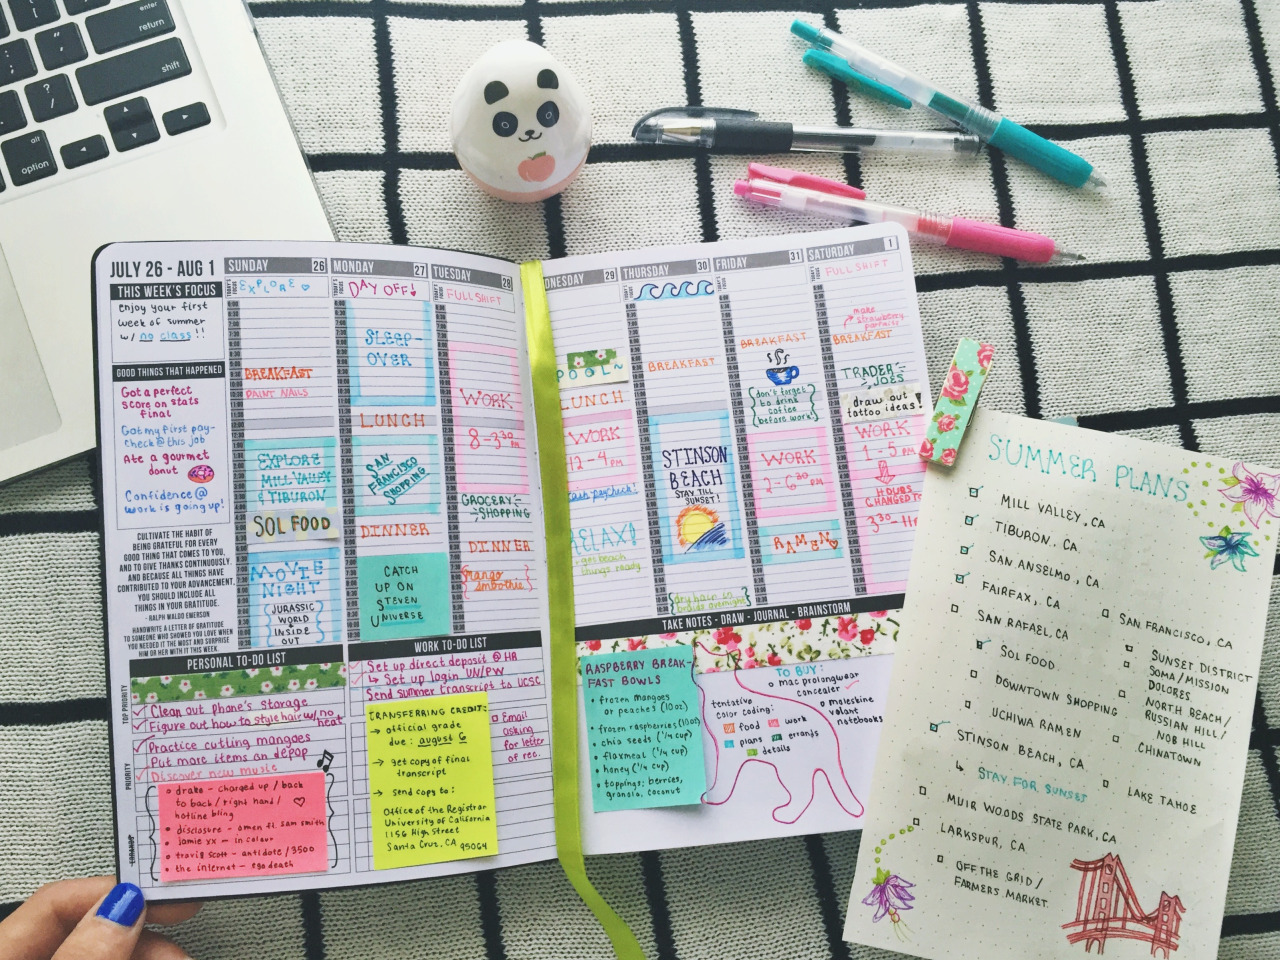 enter
return
shift
alt
option
JULY 26 - AUG 1
THIS WEEK'S FOCUS
enjoy your first
week of summer
w/ no class!!
GOOD THINGS THAT HAPPENED
Got a perfect
score on stats
final
Got my first pay-
check @ this job
Ate a gourmet
donut
Confidence @
work is going up!
CULTIVATE THE HABIT OF
BEING GRATEFUL FOR EVERY
GOOD THING THAT COMES TO YOU,
AND TO GIVE THANKS CONTINUOUSLY.
AND BECAUSE ALL THINGS HAVE
CONTRIBUTED TO YOUR ADVANCEMENT,
YOU SHOULD INCLUDE ALL
THINGS IN YOUR GRATITUDE.
- RALPH WALDO EMERSON
HANDWRITE A LETTER OF GRATITUDE
TO SOMEONE WHO SHOWED YOU LOVE WHEN
YOU NEEDED IT THE MOST AND SURPRISE
HIM OR HER WITH IT THIS WEEK.
SUNDAY 26
EXPLORE
BREAKFAST
PAINT NAILS
EXPLORE
MILL VALLEY
& TIBURON
SOL FOOD
MOVIE
NIGHT
JURASSIC
WORLD
&
INSIDE
OUT
MONDAY 27
DAY OFF!
SLEEP-
OVER
LUNCH
SAN
FRANCISCO
SHOPPING
DINNER
CATCH
UP ON
STEVEN
UNIVERSE
TUESDAY 28
FULL SHIFT
WORK
8-3:30 PM
GROCERY
SHOPPING
DINNER
mango
smoothie
PERSONAL TO-DO LIST
TOP PRIORITY
Clean out phone's storage
Figure out how to style hair w/ no
heat
PRIORITY
Practice cutting mangoes
Put more items on depop
Discover new music
ERRANDS
drake - charged up / back
to back / right hand /
hotline bling
disclosure - omen ft. sam smith
jamie xx - in colour
travis scott - antidote / 3500
the internet - ego death
WORK TO-DO LIST
Set up direct deposit @ HR
Set up login UN/PW
Send summer transcript to UCSC
TRANSFERRING CREDIT:
official grade
due: august 6
get copy of final
transcript
send copy to:
Office of the Registrar
University of California
1156 High Street
Santa Cruz, CA 95064
Email
asking
for letter
of rec.
DNESDAY 29
POOL~
LUNCH
WORK
12-4 PM
cash paycheck!
RELAX!
get beach
things ready
THURSDAY 30
BREAKFAST
STINSON
BEACH
STAY TILL
SUNSET!
dry hair in
braids overnight
FRIDAY 31
BREAKFAST
don't forget
to drink
coffee
before work
WORK
2-6:30 PM
RAMEN
SATURDAY 1
FULL SHIFT
make
strawberry
parfaits
BREAKFAST
TRADER
JOES
draw out
tattoo ideas!
WORK
1-5 PM
HOURS
CHANGED TO
3:30-
TAKE NOTES - DRAW - JOURNAL - BRAINSTORM
RASPBERRY BREAK-
FAST BOWLS
frozen mangoes
or peaches (10oz)
frozen raspberries (10oz)
chia seeds (1/4 cup)
flaxmeal (1/4 cup)
honey (1/4 cup)
toppings: berries,
granola, coconut
tentative
color coding:
food
work
plans
errands
details
TO BUY:
mac prolongwear
concealer
moleskine
volant
notebooks
SUMMER PLANS
MILL VALLEY, CA
TIBURON, CA
SAN ANSELMO, CA
FAIRFAX, CA
SAN RAFAEL, CA
SOL FOOD
DOWNTOWN SHOPPING
UCHIWA RAMEN
STINSON BEACH, CA
STAY FOR SUNSET
MUIR WOODS STATE PARK, CA
LARKSPUR, CA
OFF THE GRID /
FARMERS MARKET
SAN FRANCISCO, CA
SUNSET DISTRICT
SOMA / MISSION
DOLORES
NORTH BEACH /
RUSSIAN HILL /
NOB HILL
CHINATOWN
LAKE TAHOE